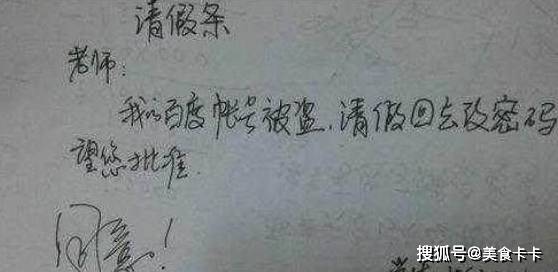 请假条
老师:
我的百度帐号被盗,请假回去改密码
望您批准.
同意!
搜狐号@美食卡卡